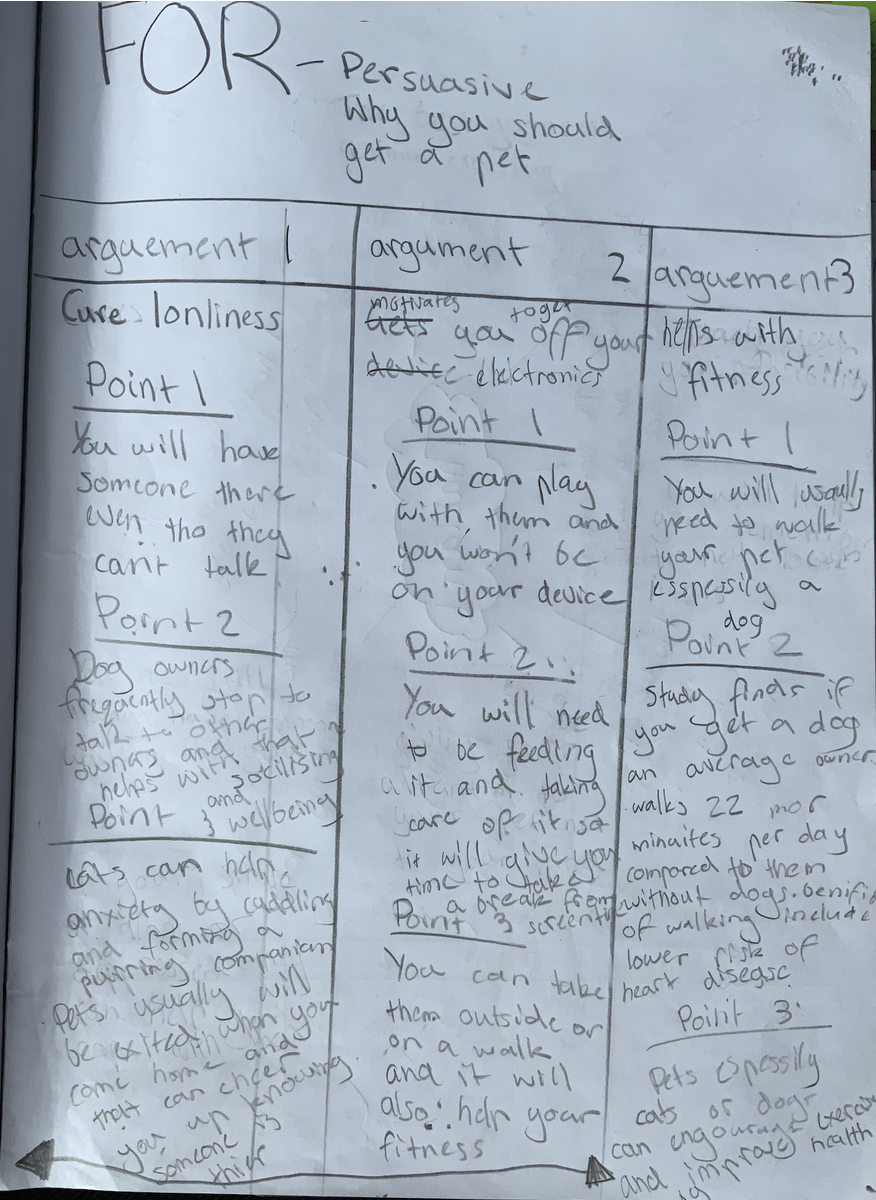 FOR - Persuasive
Why you should
get a pet
arguement 1
Cure lonliness
Point 1
You will have
someone there
even tho they
cant talk
Point 2
Dog owners
frequently stop to
talk to other
owners and that
helps with socilising
and
Point 3 wellbeing
cats can help
anxiety by cuddling
and forming a
purring companian
Pets usually will
be exited when you
come home and
that can cheer
you up knowing
someone is
argument 2
motivates
Gets you toget off your
device electronics
Point 1
You can play
with them and
you won't be
on your device
Point 2
You will need
to be feeding
it and taking
care of it so
it will give you
time to take
a break from
Point 3 screentime
You can take
them outside or
on a walk
and it will
also help your
fitness
arguement 3
helps with
fitness
Point 1
You will usaully
need to walk
your pet
esspessily a
dog
Point 2
Study finds if
you get a dog
an average owner
walks 22 mor
minaites per day
compared to them
without dogs. benifi
of walking include
lower risk of
heart disease
Point 3
Pets epessily
cats or dogs
can engourage exercise
and improve health